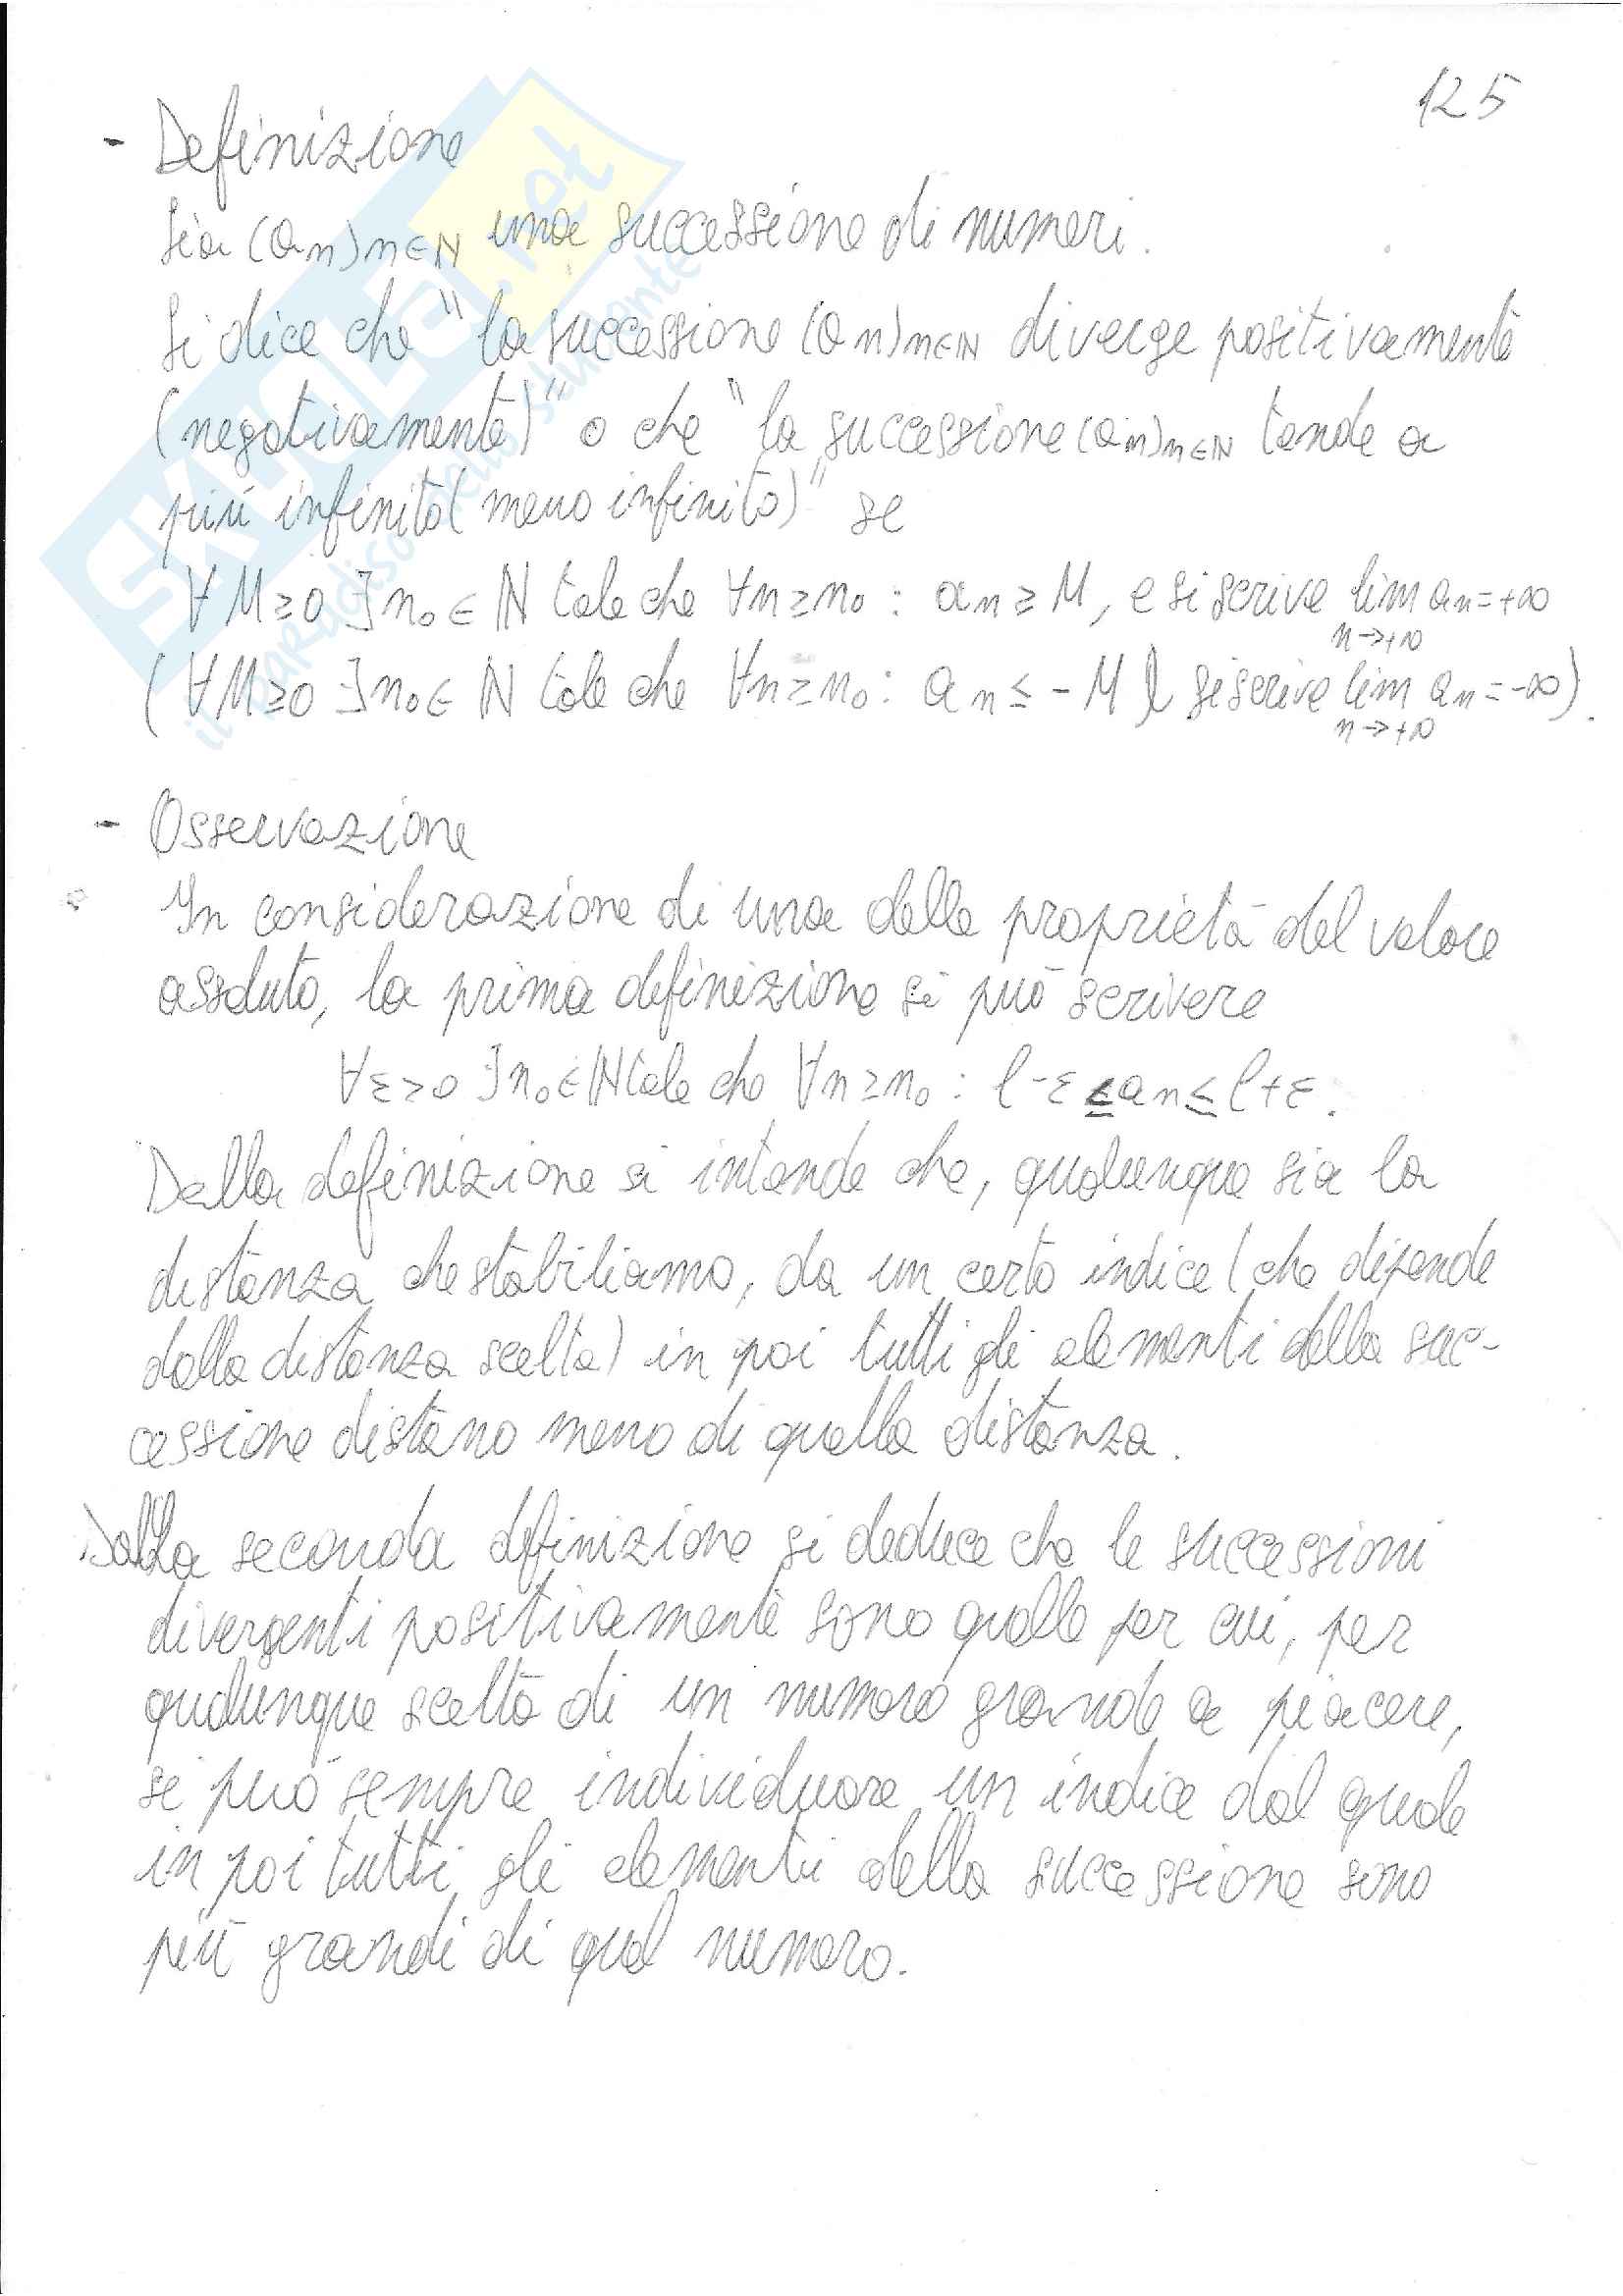 125
- Definizione
Sia (an)n∈ℕ una successione di numeri.
Si dice che "la successione (an)n∈ℕ diverge positivamente
(negativamente)" o che "la successione (an)n∈ℕ tende a
più infinito (meno infinito)" se
∀M≥0 ∃n₀∈ℕ tale che ∀n≥n₀: an≥M, e si scrive lim an=+∞
n→+∞
(∀M≥0 ∃n₀∈ℕ tale che ∀n≥n₀: an≤-M e si scrive lim an=-∞).
n→+∞
- Osservazione
In considerazione di una delle proprietà del valore
assoluto, la prima definizione si può scrivere
∀ε>0 ∃n₀∈ℕ tale che ∀n≥n₀: l-ε≤an≤l+ε.
Dalla definizione si intende che, qualunque sia la
distanza che stabiliamo, da un certo indice (che dipende
dalla distanza scelta) in poi tutti gli elementi della suc-
cessione distano meno di quella distanza.
Dalla seconda definizione si deduce che le successioni
divergenti positivamente sono quelle per cui, per
qualunque scelta di un numero grande a piacere,
si può sempre individuare un indice dal quale
in poi tutti gli elementi della successione sono
più grandi di quel numero.
SKUOLA.net
il paradiso dello studente